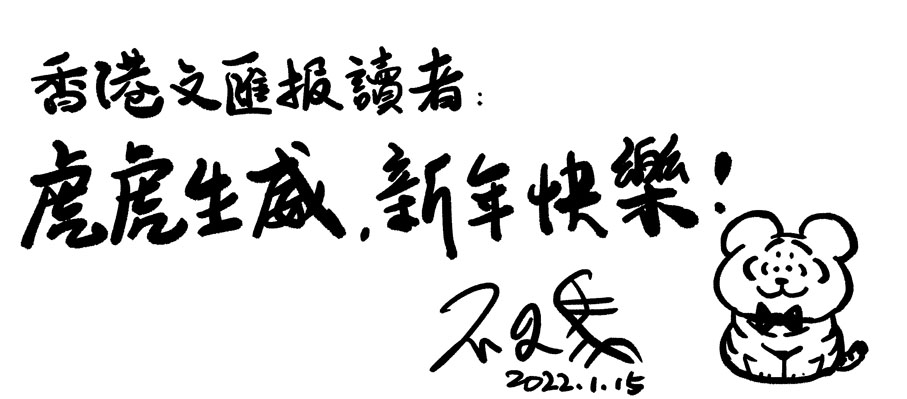 香港文匯报讀者：
虎虎生威，新年快樂！
2022.1.15